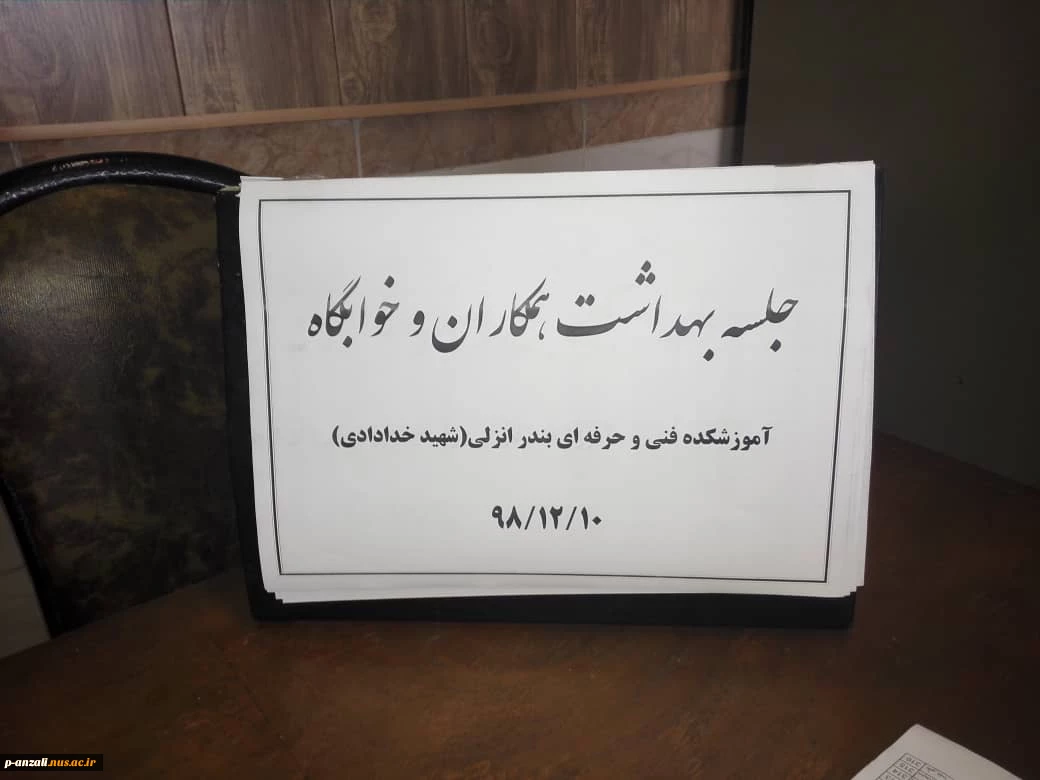 جلسه بهداشت همکاران و خوابگاه
آموزشکده فنی و حرفه ای بندر انزلی(شهید خدادادی)
۹۸/۱۲/۱۰
p-anzali.nus.ac.ir